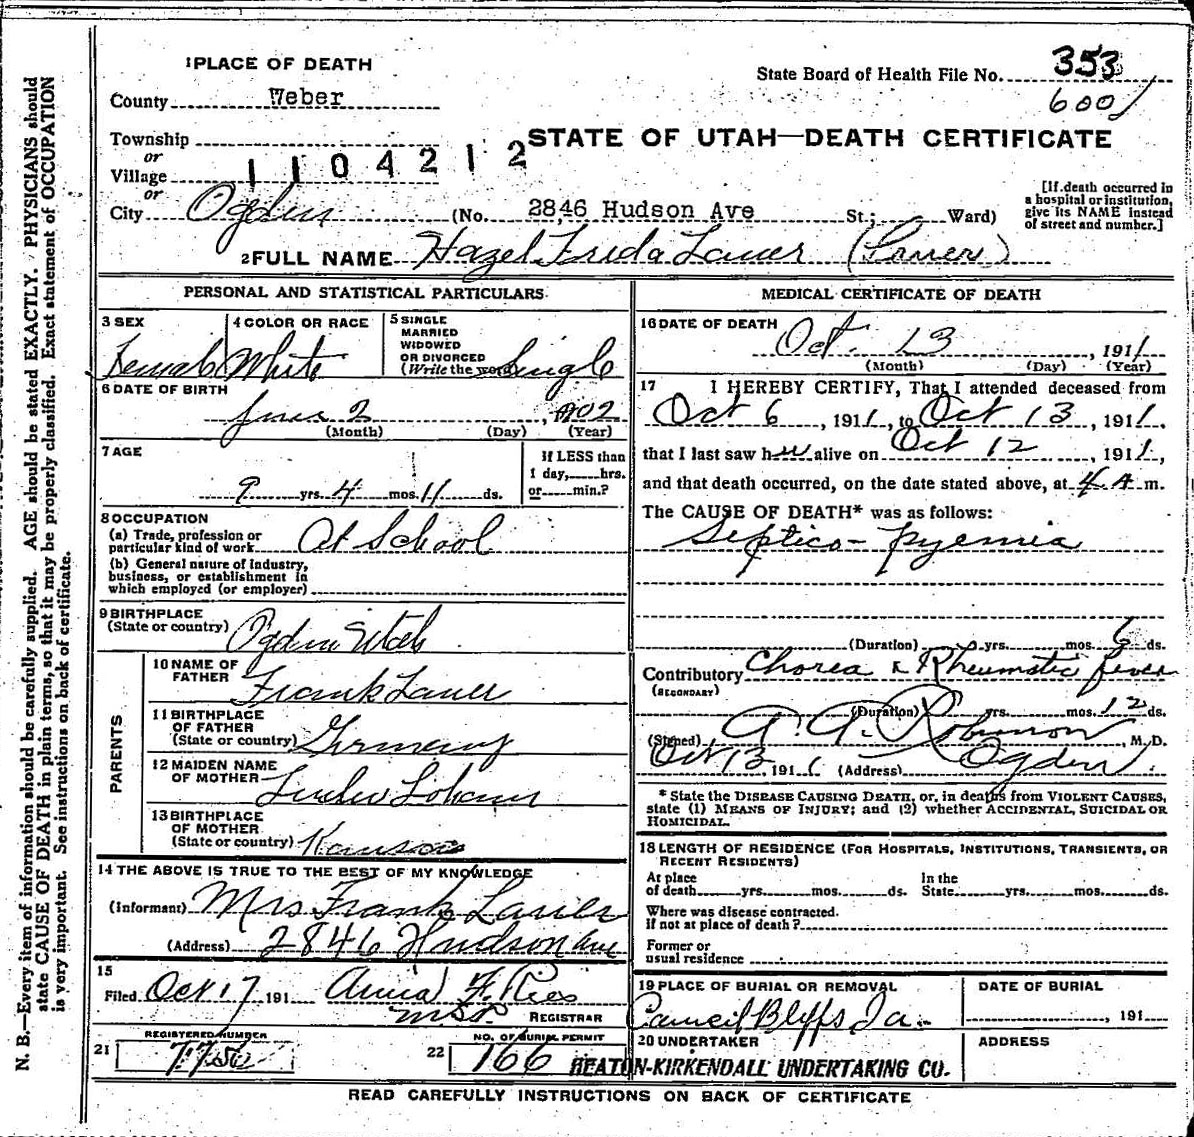 1 PLACE OF DEATH
State Board of Health File No. 353
6001
County Weber
STATE OF UTAH—DEATH CERTIFICATE
Township
or
Village
1104212
or
City Ogden (No. 2846 Hudson Ave St.; Ward)
[If death occurred in a hospital or institution, give its NAME instead of street and number.]
2 FULL NAME Hazel Frida Lauer
PERSONAL AND STATISTICAL PARTICULARS
3 SEX Female
4 COLOR OR RACE White
5 SINGLE MARRIED WIDOWED OR DIVORCED (Write the word) Single
6 DATE OF BIRTH
June 2, 1902
(Month) (Day) (Year)
7 AGE
9 yrs. 4 mos. 11 ds.
If LESS than 1 day, hrs. or min.?
8 OCCUPATION
(a) Trade, profession or particular kind of work At School
(b) General nature of industry, business, or establishment in which employed (or employer)
9 BIRTHPLACE (State or country) Ogden Utah
PARENTS
10 NAME OF FATHER Frank Lauer
11 BIRTHPLACE OF FATHER (State or country) Germany
12 MAIDEN NAME OF MOTHER
13 BIRTHPLACE OF MOTHER (State or country) Kansas
14 THE ABOVE IS TRUE TO THE BEST OF MY KNOWLEDGE
(Informant) Mrs Frank Lauer
(Address) 2846 Hudson ave
15
Filed Oct 17 191 Anna F. Ries
REGISTRAR
REGISTERED NUMBER
21
NO. OF BURIAL PERMIT
22 166
MEDICAL CERTIFICATE OF DEATH
16 DATE OF DEATH Oct. 13, 1911
(Month) (Day) (Year)
17 I HEREBY CERTIFY, That I attended deceased from
Oct 6, 1911, to Oct 13, 1911,
that I last saw her alive on Oct 12, 1911,
and that death occurred, on the date stated above, at 4 A m.
The CAUSE OF DEATH* was as follows:
Septico-pyemia
(Duration) yrs. mos. 6 ds.
Contributory Chorea & Rheumatic fever
(SECONDARY)
(Duration) yrs. mos. 12 ds.
(Signed) Robinson, M. D.
Oct 13, 1911 (Address) Ogden
* State the DISEASE CAUSING DEATH, or, in deaths from VIOLENT CAUSES, state (1) MEANS OF INJURY; and (2) whether ACCIDENTAL, SUICIDAL OR HOMICIDAL.
18 LENGTH OF RESIDENCE (FOR HOSPITALS, INSTITUTIONS, TRANSIENTS, OR RECENT RESIDENTS)
At place of death yrs. mos. ds. In the State yrs. mos. ds.
Where was disease contracted. if not at place of death?
Former or usual residence
19 PLACE OF BURIAL OR REMOVAL
Council Bluffs Ia.
DATE OF BURIAL
, 191
20 UNDERTAKER
ADDRESS
HEATON-KIRKENDALL UNDERTAKING CO.
READ CAREFULLY INSTRUCTIONS ON BACK OF CERTIFICATE
N. B.—Every item of information should be carefully supplied. AGE should be stated EXACTLY. PHYSICIANS should
state CAUSE OF DEATH in plain terms, so that it may be properly classified. Exact statement of OCCUPATION
is very important. See instructions on back of certificate.